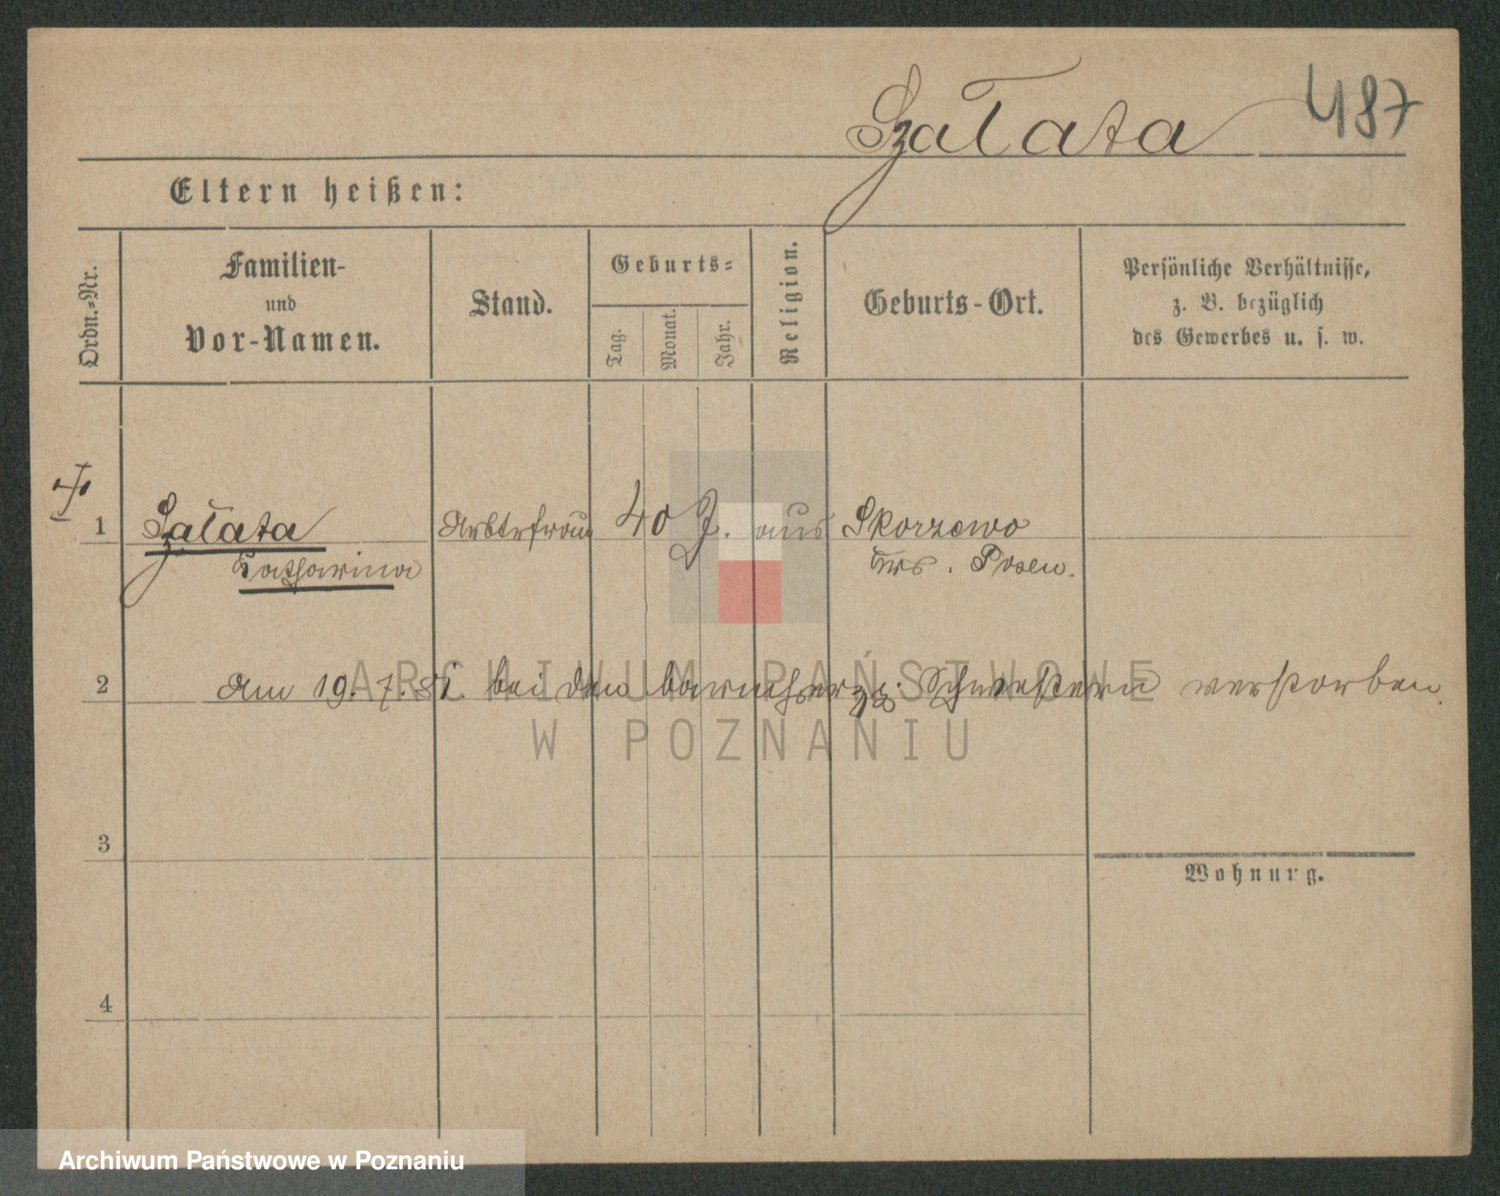 Szałata 487
Eltern heißen:
Ordn.-Nr.
Familien-
und
Vor-Namen.
Stand.
Geburts-
Tag.
Monat.
Jahr.
Religion.
Geburts-Ort.
Persönliche Verhältnisse,
z. B. bezüglich
des Gewerbes u. s. w.
1 Szałata Arbtrfrau 40 J. aus Skorzewo
Katharina Krs. Posen.
2 Am 19. 7. 81. bei den barmherzg. Schwestern verstorben.
3
Wohnung.
4
ARCHIWUM PAŃSTWOWE
W POZNANIU
Archiwum Państwowe w Poznaniu